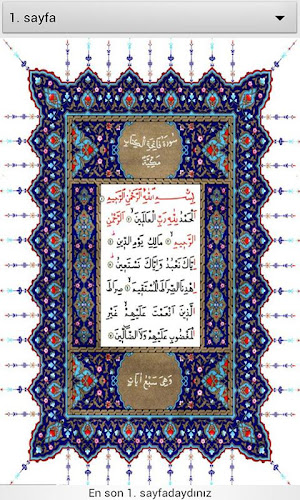 1. sayfa
سورة فاتحة الكتاب
مكية
بِسْمِ اللهِ الرَّحْمٰنِ الرَّحِيمِ
اَلْحَمْدُ لِلّٰهِ رَبِّ الْعَالَمِينَ ۞ اَلرَّحْمٰنِ
الرَّحِيمِ ۞ مَالِكِ يَوْمِ الدِّينِ ۞
اِيَّاكَ نَعْبُدُ وَاِيَّاكَ نَسْتَعِينُ ۞
اِهْدِنَا الصِّرَاطَ الْمُسْتَقِيمَ ۞ صِرَاطَ
الَّذِينَ اَنْعَمْتَ عَلَيْهِمْ غَيْرِ
الْمَغْضُوبِ عَلَيْهِمْ وَلَا الضَّالِّينَ ۞
وهي سبع آيات
En son 1. sayfadaydınız